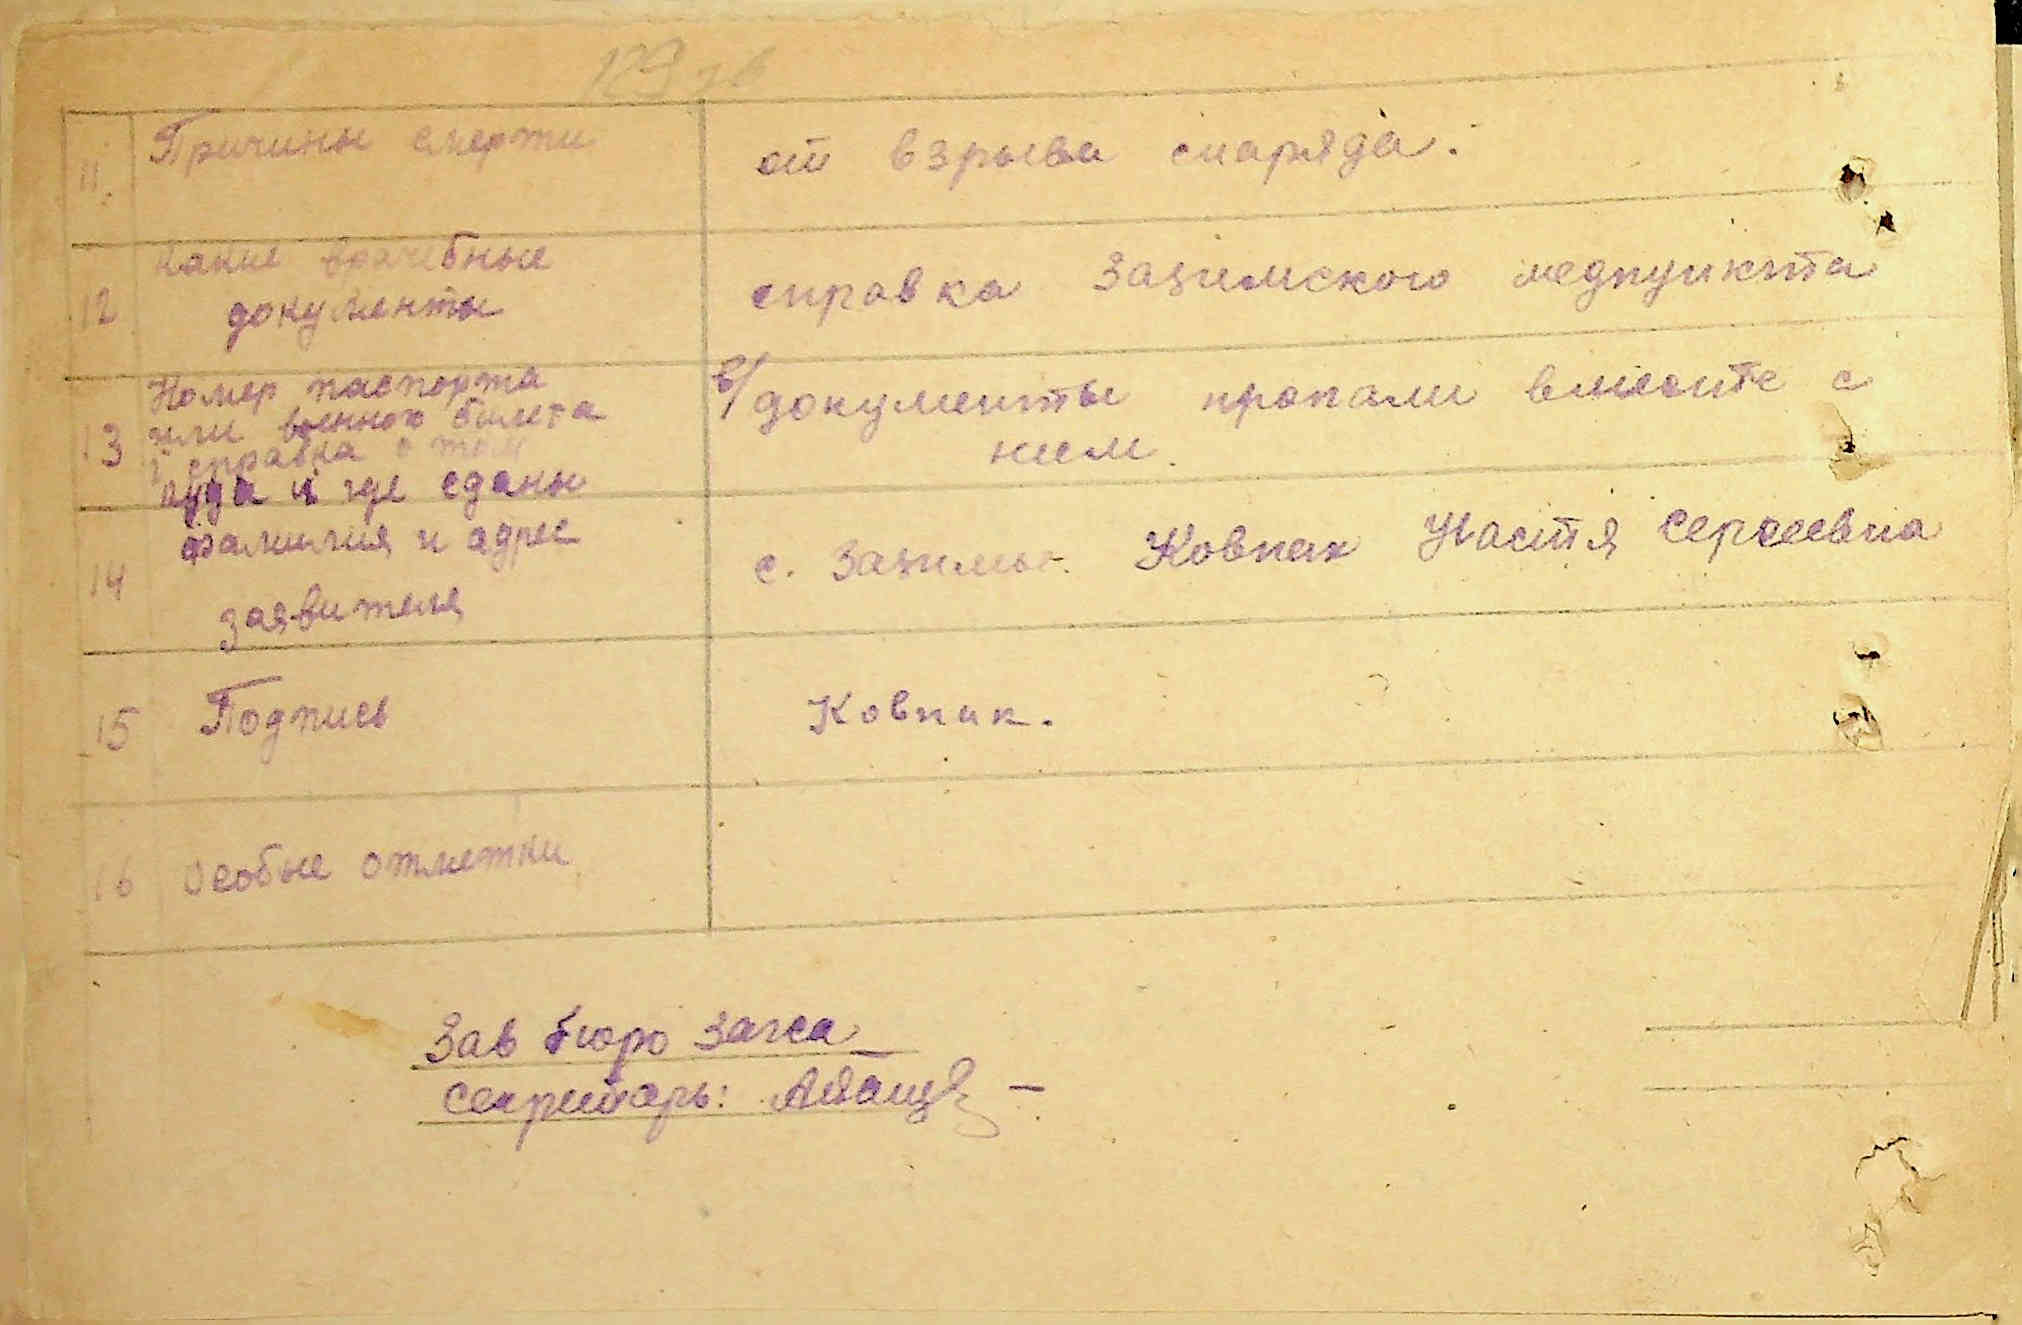 129
11. Причины смерти
от взрыва снаряда.
12 Какие врачебные
документы
справка Зазимского медпункта
13 Номер паспорта
или военного билета
и справка о том
куда и где сданы
в/документы пропали вместе с
ним.
14 фамилия и адрес
заявителя
с. Зазимье. Ковпак Настя Сергеевна
15 Подпись
Ковпак.
16 Особые отметки
Зав бюро Загса
Секретарь: